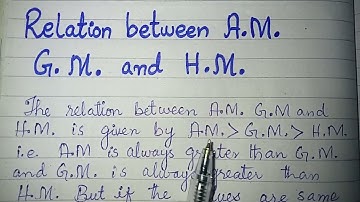 Relation between A.M.
G.M. and H.M.
The relation between A.M. G.M and
H.M. is given by A.M. > G.M. > H.M.
i.e. A.M is always greater than G.M.
and G.M. is always greater than
H.M. But if the are same